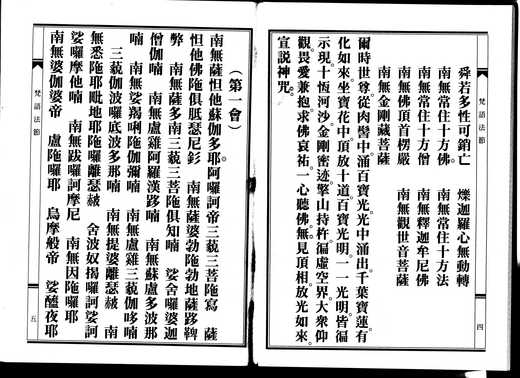 梵語法節
四
舜若多性可銷亡　爍迦羅心無動轉
南無常住十方佛　南無常住十方法
南無常住十方僧　南無釋迦牟尼佛
南無佛頂首楞嚴　南無觀世音菩薩
南無金剛藏菩薩
爾時世尊從肉髻中涌百寶光。光中涌出千葉寶蓮。有
化如來坐寶花中。頂放十道百寶光明。一一光明皆徧
示現十恆河沙金剛密迹。擎山持杵徧虛空界。大眾仰
觀畏愛兼抱。求佛哀祐。一心聽佛。無見頂相放光如來。
宣說神咒。
梵語法節
五
（第一會）
南無薩怛他蘇伽多耶阿囉訶帝三藐三菩陁寫　薩
怛他佛陁俱胝瑟尼釤　南無薩婆勃陁勃地薩跢鞞
弊　南無薩多南三藐三菩陁俱知喃　娑舍囉婆迦
僧伽喃　南無盧雞阿羅漢跢喃　南無蘇盧多波那
喃　南無娑羯唎陁伽彌喃　南無盧雞三藐伽哆喃
三藐伽波囉底波多那喃　南無提婆離瑟赧　南
無悉陁耶毗地耶陁囉離瑟赧　舍波奴揭囉訶娑訶
娑囉摩他喃　南無跋囉訶摩尼　南無因陁囉耶
南無婆伽婆帝　盧陁囉耶　烏摩般帝　娑醯夜耶